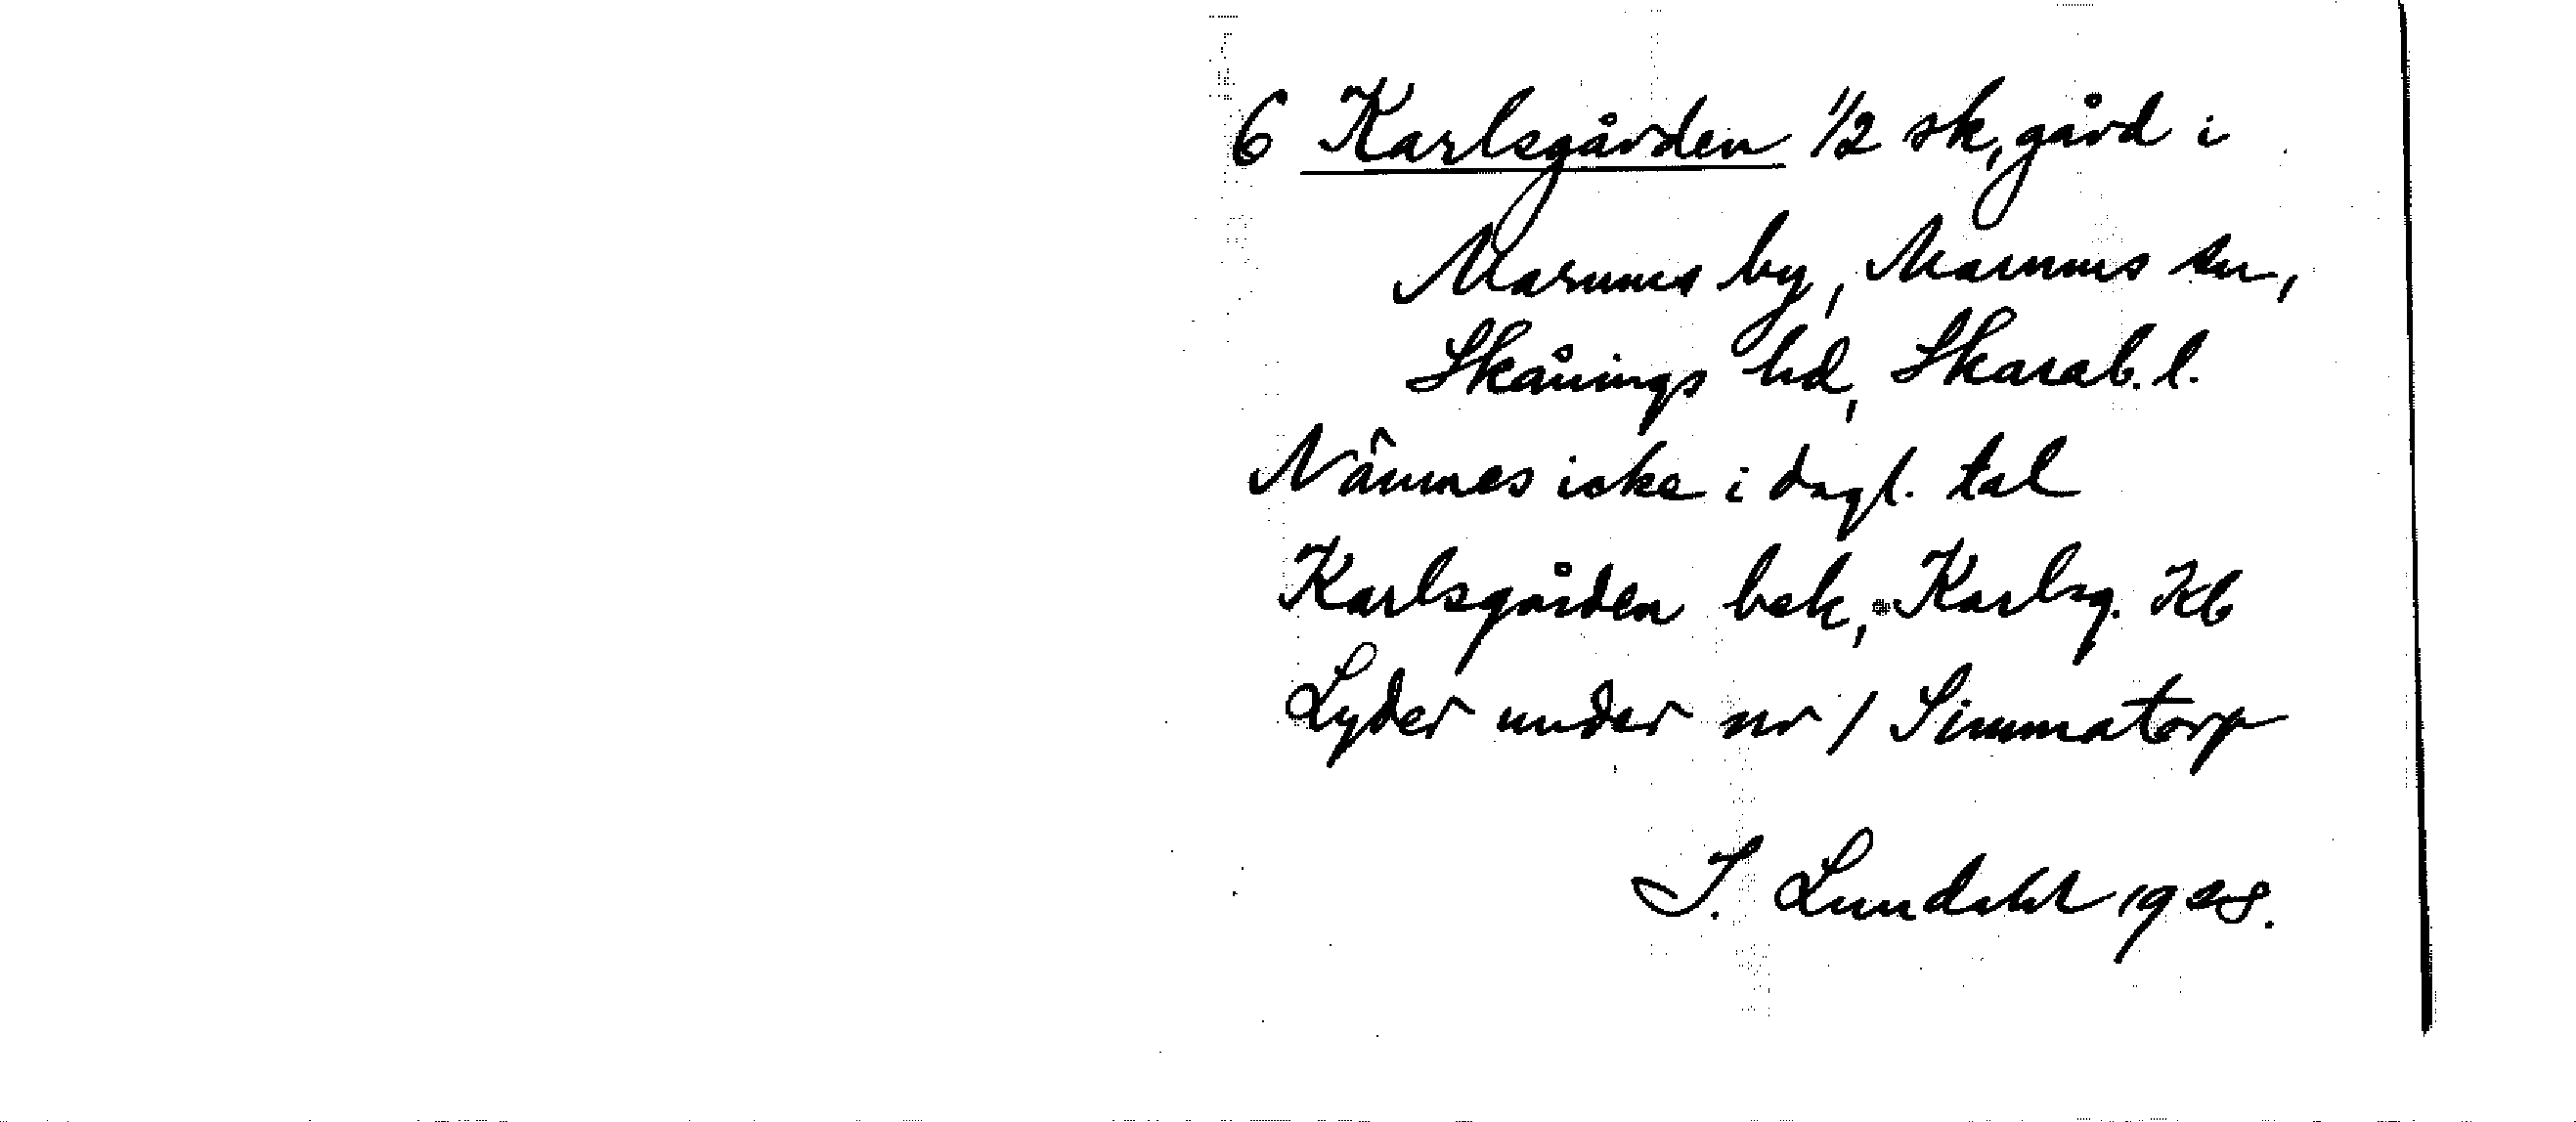 6 Karlsgården 1/2 sk, gård i
Marums by, Marums sn,
Skånings hd, Skarab. l.
Nämnes icke i dagl. tal
Karlsgården bek, Karlsg. Kb
Lyder under nr 1 Simmatorp
I. Lundahl 1928.